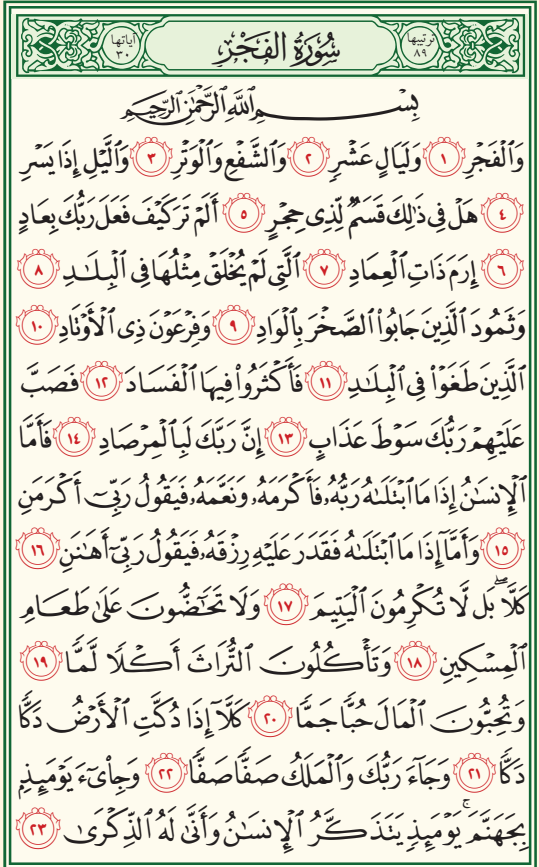 ترتيبها ٨٩
سُورَةُ الفَجْرِ
آياتها ٣٠
بِسْمِ ٱللَّهِ ٱلرَّحْمَٰنِ ٱلرَّحِيمِ
وَٱلْفَجْرِ ١ وَلَيَالٍ عَشْرٍ ٢ وَٱلشَّفْعِ وَٱلْوَتْرِ ٣ وَٱلَّيْلِ إِذَا يَسْرِ
٤ هَلْ فِى ذَٰلِكَ قَسَمٌ لِّذِى حِجْرٍ ٥ أَلَمْ تَرَ كَيْفَ فَعَلَ رَبُّكَ بِعَادٍ
٦ إِرَمَ ذَاتِ ٱلْعِمَادِ ٧ ٱلَّتِى لَمْ يُخْلَقْ مِثْلُهَا فِى ٱلْبِلَٰدِ ٨
وَثَمُودَ ٱلَّذِينَ جَابُوا۟ ٱلصَّخْرَ بِٱلْوَادِ ٩ وَفِرْعَوْنَ ذِى ٱلْأَوْتَادِ ١٠
ٱلَّذِينَ طَغَوْا۟ فِى ٱلْبِلَٰدِ ١١ فَأَكْثَرُوا۟ فِيهَا ٱلْفَسَادَ ١٢ فَصَبَّ
عَلَيْهِمْ رَبُّكَ سَوْطَ عَذَابٍ ١٣ إِنَّ رَبَّكَ لَبِٱلْمِرْصَادِ ١٤ فَأَمَّا
ٱلْإِنسَٰنُ إِذَا مَا ٱبْتَلَىٰهُ رَبُّهُۥ فَأَكْرَمَهُۥ وَنَعَّمَهُۥ فَيَقُولُ رَبِّىٓ أَكْرَمَنِ
١٥ وَأَمَّآ إِذَا مَا ٱبْتَلَىٰهُ فَقَدَرَ عَلَيْهِ رِزْقَهُۥ فَيَقُولُ رَبِّىٓ أَهَٰنَنِ ١٦
كَلَّا ۖ بَل لَّا تُكْرِمُونَ ٱلْيَتِيمَ ١٧ وَلَا تَحَٰٓضُّونَ عَلَىٰ طَعَامِ
ٱلْمِسْكِينِ ١٨ وَتَأْكُلُونَ ٱلتُّرَاثَ أَكْلًا لَّمًّا ١٩
وَتُحِبُّونَ ٱلْمَالَ حُبًّا جَمًّا ٢٠ كَلَّآ إِذَا دُكَّتِ ٱلْأَرْضُ دَكًّا
دَكًّا ٢١ وَجَآءَ رَبُّكَ وَٱلْمَلَكُ صَفًّا صَفًّا ٢٢ وَجِا۟ىٓءَ يَوْمَئِذٍۭ
بِجَهَنَّمَ ۚ يَوْمَئِذٍ يَتَذَكَّرُ ٱلْإِنسَٰنُ وَأَنَّىٰ لَهُ ٱلذِّكْرَىٰ ٢٣